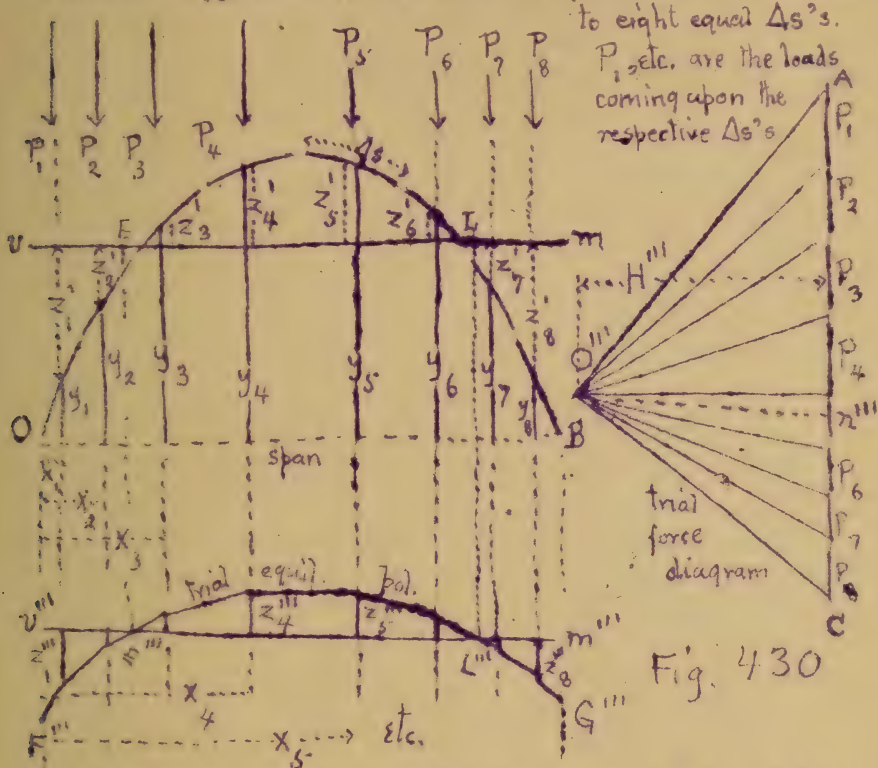 to eight equal Δs's.
P₁, etc. are the loads
coming upon the
respective Δs's
P₁ P₂ P₃ P₄ P₅ P₆ P₇ P₈
Δs
z'₁ z'₂ z'₃ z'₄ z'₅ z'₆ z'₇ z'₈
v E L m
y₁ y₂ y₃ y₄ y₅ y₆ y₇ y₈
O span B
x₁
x₂
x₃
trial equil. pol.
v''' m''' L''' m'''
z'''₁ z'''₄ z'''₅ z'''₈
x₄
F''' G'''
x₅ Etc.
A
P₁
P₂
H''' P₃
O''' P₄
n'''
P₆
P₇
P₈
C
trial
force
diagram
Fig. 430